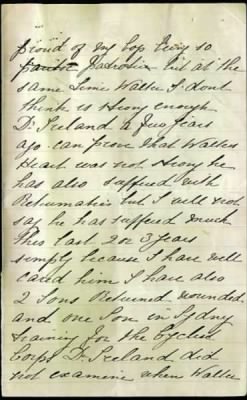 proud of my boy being so
patriotic but at the
same time Walter I dont
think is strong enough
Dr Ireland a few years
ago can prove that Walters
Heart was not strong he
has also suffered with
Rehumatics but I will not
say he has suffered much
this last 2 or 3 years
simply because I have well
cared him I have also
2 Sons Returned wounded
and one Son in Sydney
training for the Cyclist
Corps Dr Ireland did
not examine when Walter